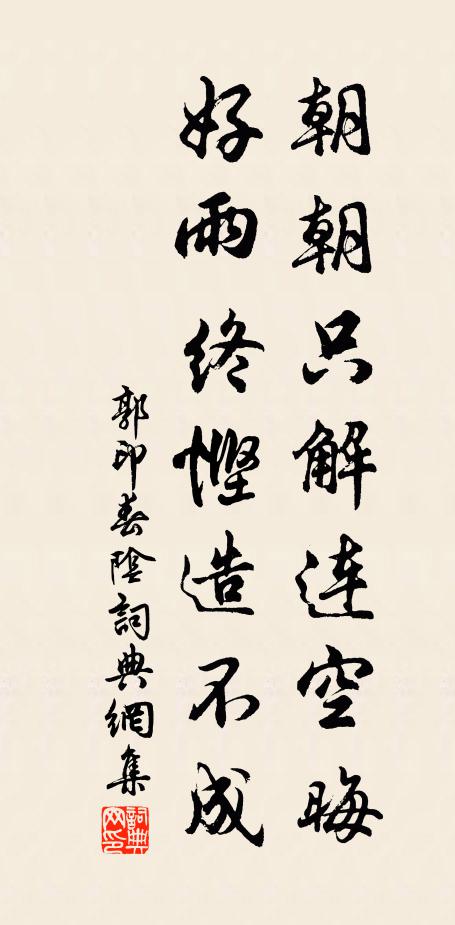 朝朝只解連空晦
好雨終慳造不成
郭印春陰詞典網集
詞典網印